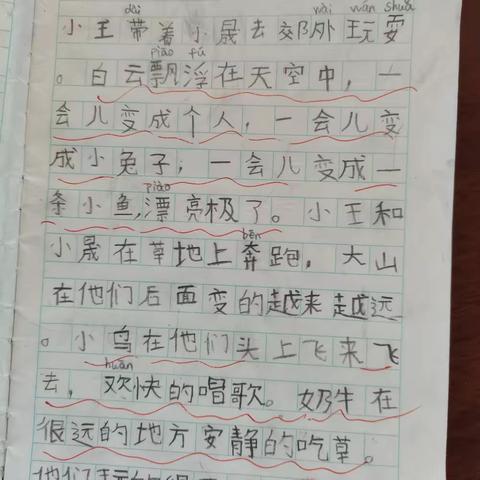 dài wài wán shuǎ
小王带着小晟去郊外玩耍
piāo fú
。白云飘浮在天空中，一
会儿变成个人，一会儿变
成小兔子；一会儿变成一
piào
条小鱼,漂亮极了。小王和
bēn
小晟在草地上奔跑，大山
在他们后面变的越来越远
。小鸟在他们头上飞来飞
huān
去，欢快的唱歌。奶牛在
很远的地方安静的吃草。
他们玩的很